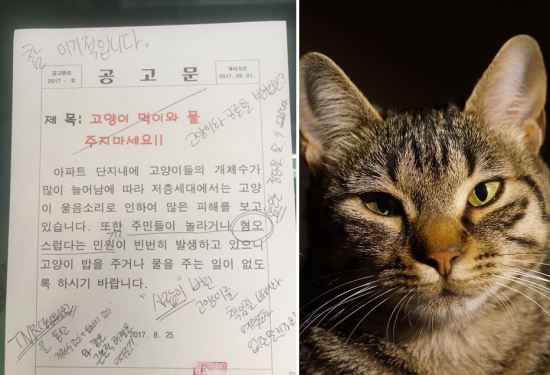 참 이기적입니다.
공고번호
2017 - 호
공 고 문
게시기간
2017. 09. 01.
제 목: 고양이 먹이와 물
주지마세요!!
고양이와 공존할 방법은?
아파트 단지내에 고양이들의 개체수가
많이 늘어남에 따라 저층세대에서는 고양
이 울음소리로 인하여 많은 피해를 보고
있습니다. 또한 주민들이 놀라거나 혐오
스럽다는 민원이 빈번히 발생하고 있으니
고양이 밥을 주거나 물을 주는 일이 없도
록 하시기 바랍니다.
"사람이" 버린
고양이를
책임질
TNR
을 통한
2017. 8. 25